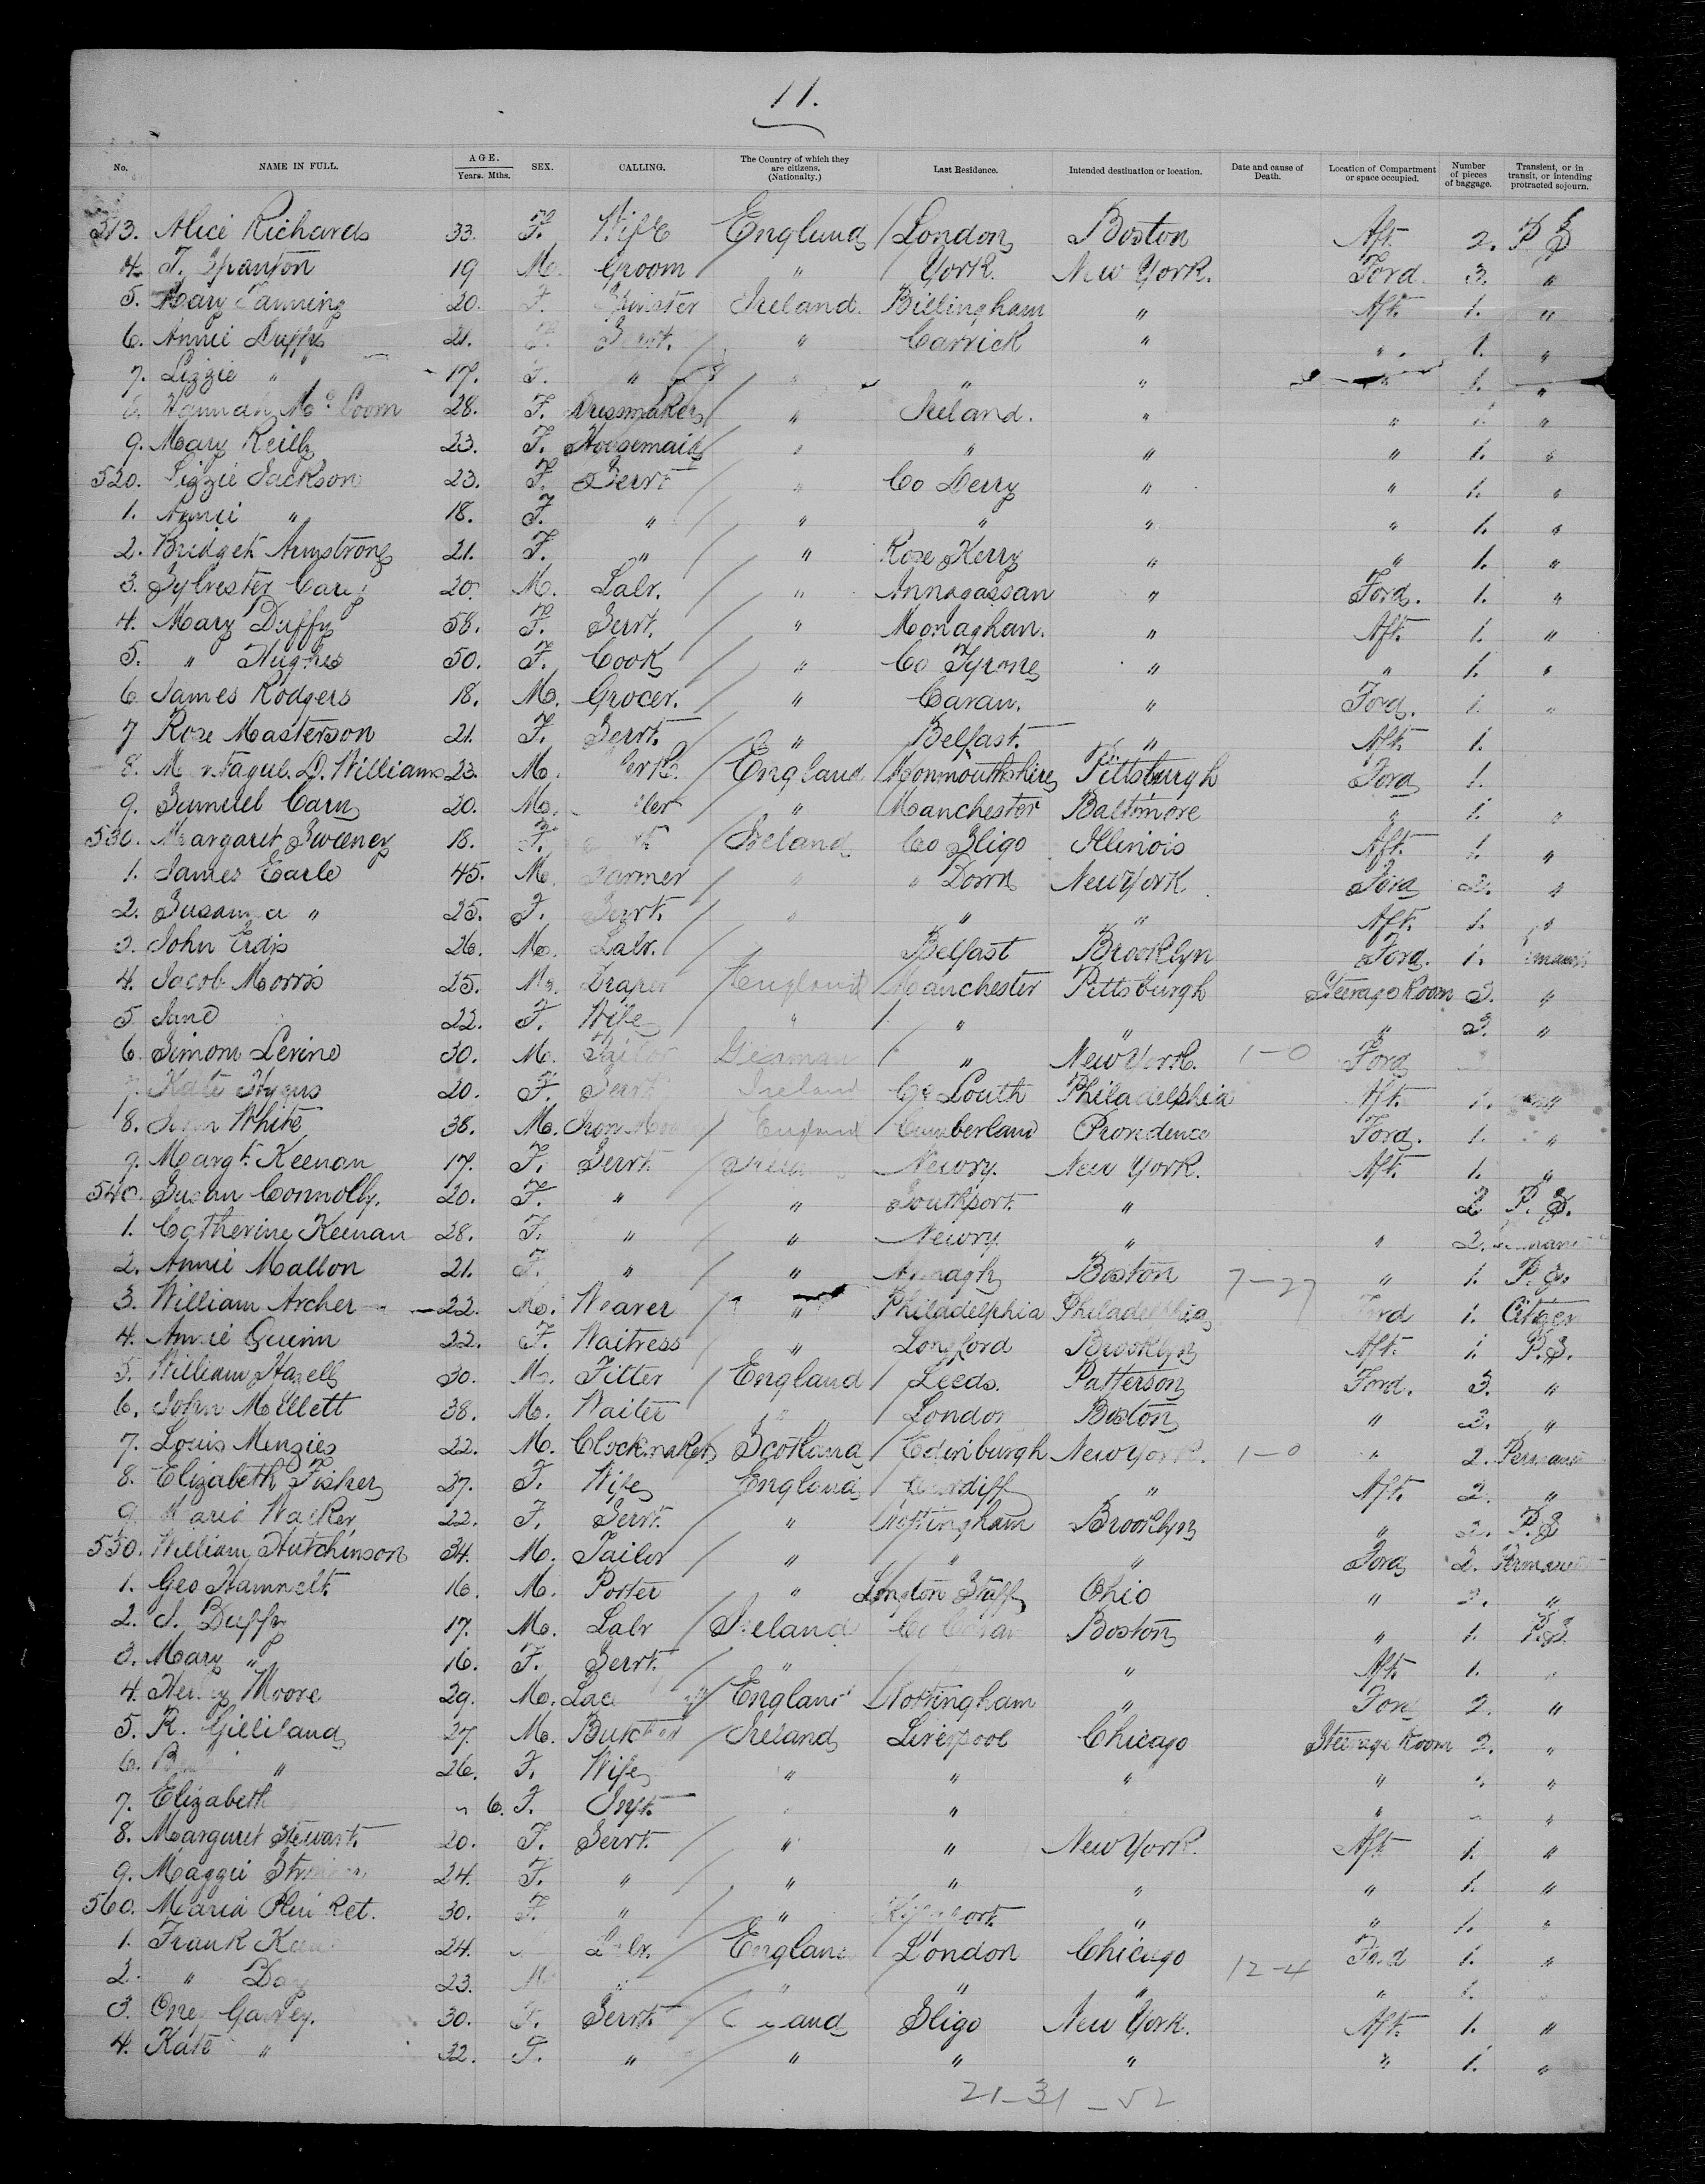 11.
No. NAME IN FULL. AGE. Years. Mths. SEX. CALLING. The Country of which they are citizens. (Nationalty.) Last Residence. Intended destination or location. Date and cause of Death. Location of Compartment or space occupied. Number of pieces of baggage. Transient, or in transit, or intending protracted sojourn.
513. Alice Richards 33. F. Wife England London Boston Aft. 2. P S
4. T. Spanton 19 M. Groom " York. New York. Ford. 3. "
5. Mary 20. F. Spinster Ireland. Billingham " Aft. 1. "
6. Annie Duffy 21. F. " Carrick " " 1. "
7. Lizzie " 17. F. " " " " " 1. "
Hannah 28. F. Dressmaker " Ireland. " " 1. "
9. Mary Reilly 23. F. Housemaid " " " " 1. "
520. Lizzie Jackson 23. F. Servt " Co Derry " " 1. "
1. Annie " 18. F. " " " " " 1. "
2. Bridget Armstrong 21. F. " " Kerry " " 1. "
3. Sylvester 20. M. Labr. " Annagassan " Ford. 1. "
4. Mary Duffy 58. F. Servt. " Monaghan. " Aft. 1. "
5. " Hughes 50. F. Cook " Co Tyrone " " 1. "
6 James Rodgers 18. M. Grocer. " Cavan. " Ford. 1. "
7 Rose Masterson 21. F. Servt. " Belfast. " Aft. 1.
8. D. Williams 23. M. England Monmouthshire Pittsburgh Ford 1.
9. Samuel 20. M. " Manchester Baltimore " 1. "
530. Margaret Sweeney 18. F. Ireland Co Sligo Illinois Aft. 1. "
1. James Earle 45. M. Farmer " " Down New York Ford 2. "
2. " 25. F. Servt. " " " Aft. 1. "
3. John 26. M. Labr. Belfast Brooklyn Ford. 1.
4. Jacob Morris 25. M. Draper England Manchester Pittsburgh Steerage Room 2. "
5 Jane 22. F. Wife " " " " 2. "
6. Simon Levine 30. M. Tailor German " New York. 1-0 Ford
7. Kate 20. F. Servt Ireland Co Louth Philadelphia Aft. 1.
8. White 38. M. Iron England Cumberland Providence Ford. 1. "
9. Margt. Keenan 17. F. Servt. Newry. New York. Aft. 1. "
540. Susan Connolly. 20. F. " " Southport. " 2 P. S.
1. Catherine Keenan 28. F. " " Newry. " " 2.
2. Annie Mallon 21. F. " " Armagh Boston 7-27 " 1. P. S.
3. William Archer 22. M. Weaver " Philadelphia Philadelphia Ford 1. Citizen
4. Annie Quinn 22. F. Waitress " Longford Brooklyn Aft. 1. P.S.
5. William Hazell 30. M. Fitter England Leeds. Patterson Ford. 3. "
6. John Millett 38. M. Waiter " London Boston " 3. "
7. Louis Menzies 22. M. Clockmaker Scotland Edinburgh New York. 1-0 " 2. Permanent
8. Elizabeth Fisher 37. F. Wife England Cardiff " Aft. 2. "
9. Walker 22. F. Servt. " Nottingham Brooklyn " 2. P.S
550. William Hutchinson 34. M. Tailor " " " Ford 2. Permanent
1. Geo Hamnett 16. M. Porter " Longton Staff Ohio " 2. "
2. J. Duffy 17. M. Labr Ireland Co Cavan Boston " 1. P.S.
3. Mary " 16. F. Servt. " " Aft. 1. "
4. Henry Moore 29. M. England Nottingham " Ford 2. "
5. R. Gilliland 27. M. Butcher Ireland Liverpool Chicago Steerage Room 2. "
6. " 26. F. Wife " " " " "
7. Elizabeth 6. F. Inft. " " " "
8. Margaret Stewart. 20. F. Servt. " " New York. Aft 1. "
9. Maggie 24. F. " " " " " 1. "
560. Maria Plunket. 30. F. " " " " 1. "
1. Frank 24. Labr. England London Chicago Ford 1. "
2. " Day 23. M " " " " 12-4 " 1.
3. Garvey. 30. F. Servt. Sligo New York. Aft. 1. "
4. Kate " 32. F. " " " " " 1. "
21-31-52